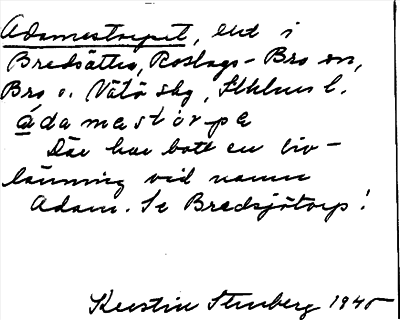 Adamestorpet, ent i
Bredsätter, Roslags-Bro sn,
Bro o. Vätö skg, Sthlms l.
ádamestórpe
Där har bott en liv-
länning vid namn
Adam. Se Bredsjötorp!
Kerstin Stenberg 1945